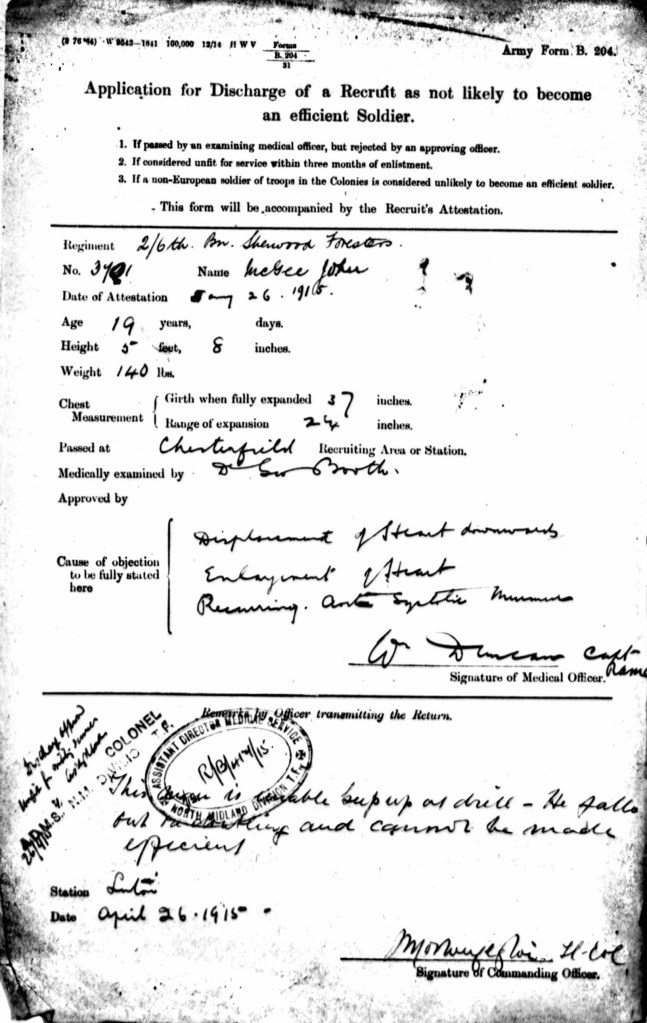 (8 76 44) W 9543—1841 100,000 12/14 H W V Forms
B. 204
31
Army Form B. 204.
Application for Discharge of a Recruit as not likely to become
an efficient Soldier.
1. If passed by an examining medical officer, but rejected by an approving officer.
2. If considered unfit for service within three months of enlistment.
3. If a non-European soldier of troops in the Colonies is considered unlikely to become an efficient soldier.
This form will be accompanied by the Recruit's Attestation.
Regiment 2/6th. Bn. Sherwood Foresters.
No. Name McGee John
Date of Attestation Jany 26. 1915.
Age 19 years, days.
Height 5 feet, 8 inches.
Weight 140 lbs.
Chest Measurement { Girth when fully expanded 37 inches.
Range of expansion inches.
Passed at Chesterfield Recruiting Area or Station.
Medically examined by Dr Geo Booth.
Approved by
Cause of objection to be fully stated here
Displacement of Heart downwards
Enlargement of Heart
Recurring. Systolic Murmur
Wm Duncan Capt
RAMC
Signature of Medical Officer.
Remarks by Officer transmitting the Return.
COLONEL
A.D.M.S. N.M. DIVN. T.F.
ASSISTANT DIRECTOR MEDICAL SERVICE
NORTH MIDLAND DIVISION T.F.
This man is unable at drill - He falls
out and cannot be made
efficient
Station Luton
Date April 26. 1915.
Lt-Col
Signature of Commanding Officer.